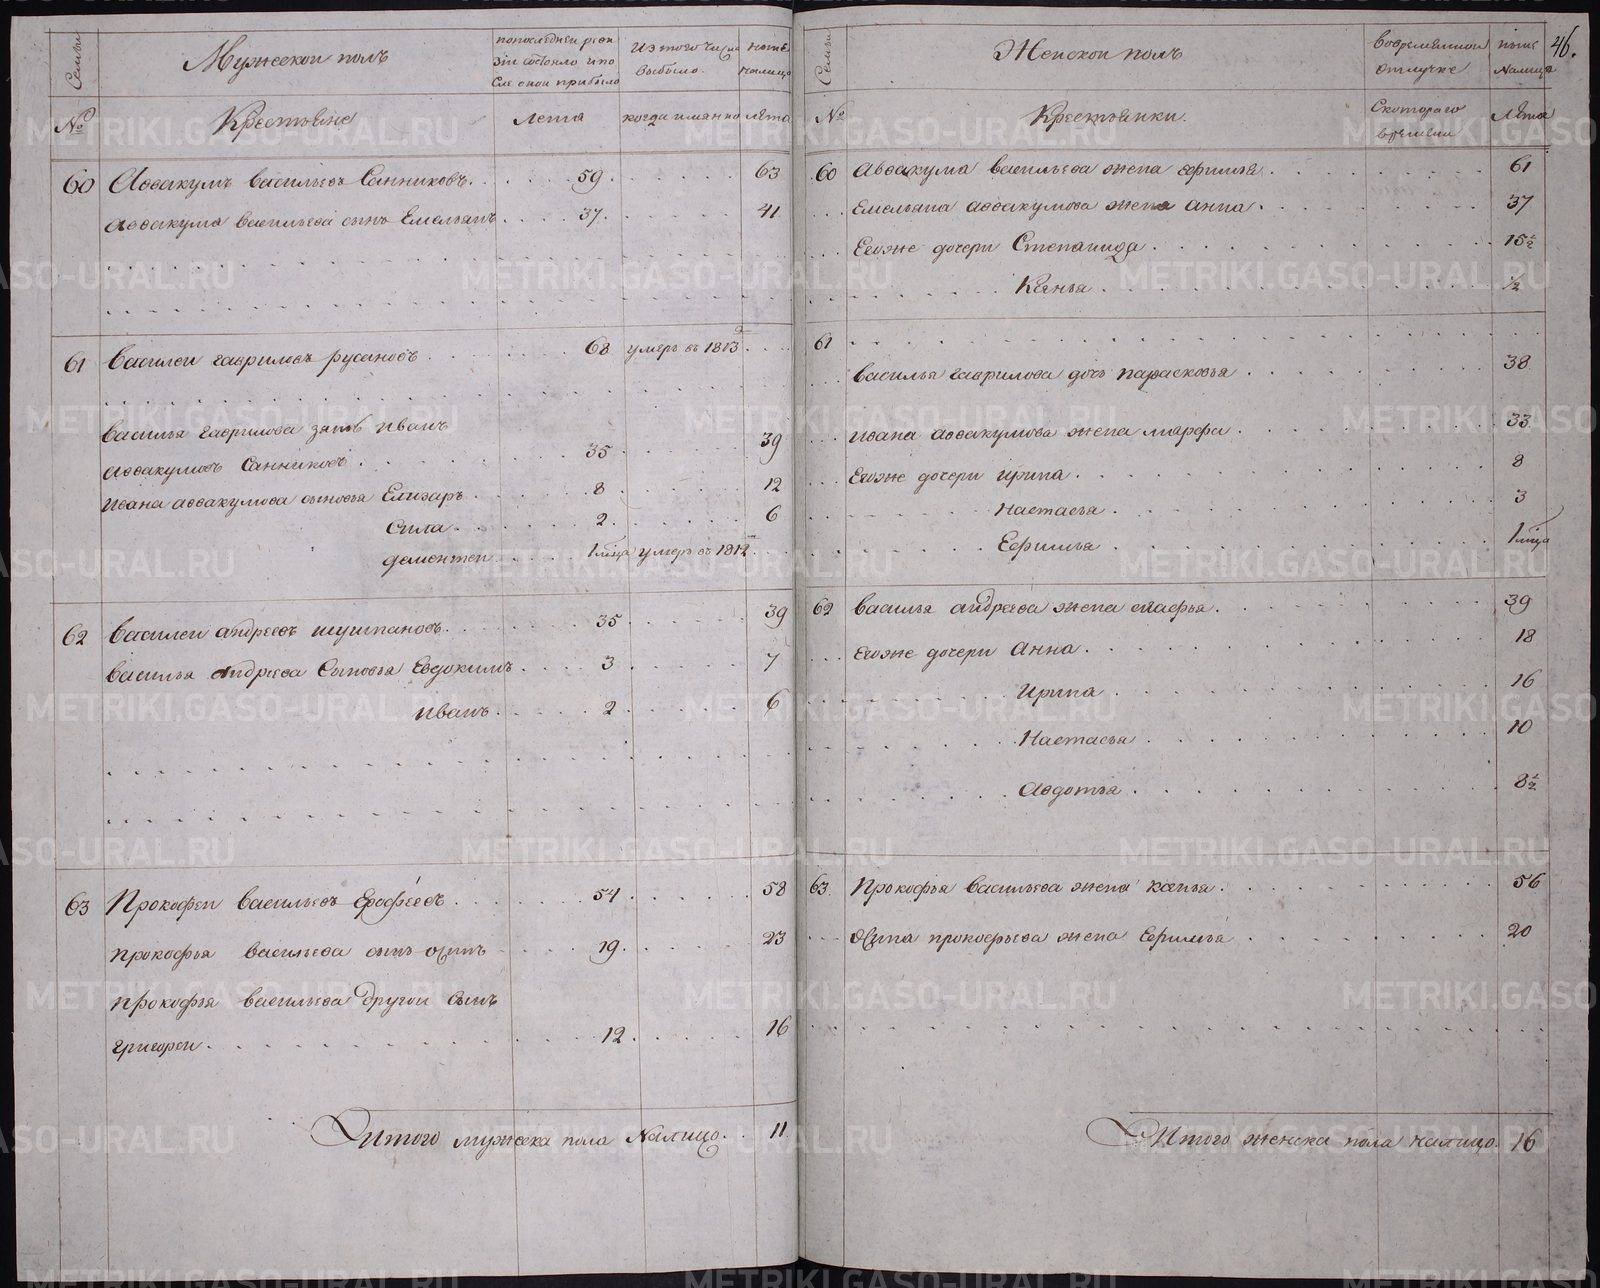 Семьи
Мужескои полъ
попоследнеи реви
зіи состояло ипо
сле онои прибыло
Изтого числа
выбыло.
ныне
налицо
№
Крестьяне
Лета
когда имянно
Лета
60 Аввакумъ васильевъ Санниковъ. 59. 63
Аввакума васильева сынъ Емельянъ 37. 41
61 Василеи гавриловъ русановъ 68 умеръ въ 1813
Василья гаврилова зять иванъ
Аввакумовъ Санниковъ 35 39
ивана аввакумова сыновья Елизаръ 8 12
Сила 2. 6
дементеи 1 мѣца умеръ въ 1812
62 Василеи андреевъ шушпановъ 35 39
Василья андреева Сыновья Евдокимъ 3 7
иванъ 2 6
63 Прокофеи васильевъ Ерофѣевъ 54 58
прокофья васильева сынъ осипъ 19. 23
прокофья васильева другои сынъ
григореи 12 16
Итого мужеска пола Налицо. 11
46.
Семьи
Женскои полъ
вовремяннои
отлучке
ныне
налицо
№
Крестьянки.
Скотораго
времени
Лета
60 Аввакума васильева жена Ефимья 61
Емельяна аввакумова жена анна 37
Егоже дочери Степанида 15½
Ксенья ½
61
василья гаврилова дочь парасковья 38
ивана аввакумова жена марфа 33
Егоже дочери ирина 8
настасья 3
Ефимья 1 мѣца
62 василья андреева жена 39
Егоже дочери Анна 18
ирина 16
Настасья 10
Авдотья 8½
63 Прокофья васильева жена ксенья 56
осипа прокофьева жена Ефимья 20
Итого женска пола налицо. 16
METRIKI.GASO-URAL.RU